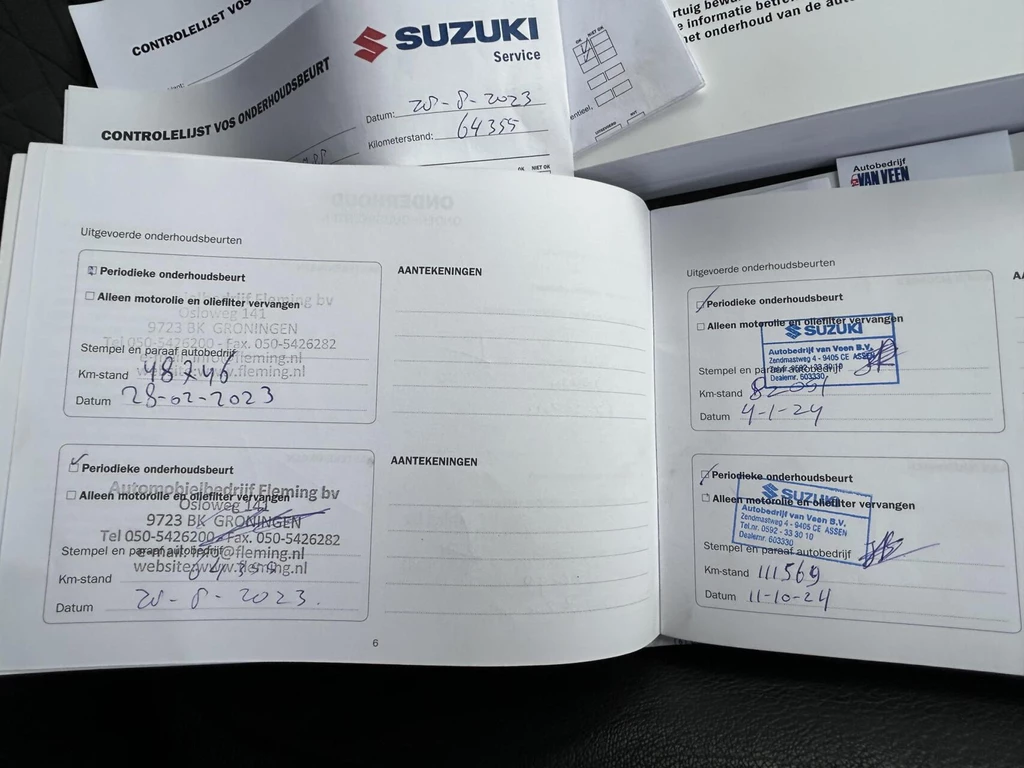 CONTROLELIJST VOS
CONTROLELIJST VOS ONDERHOUDSBEURT
SUZUKI
Service
Datum: 28-8-2023
Kilometerstand: 64355
OK NIET OK
OK NIET OK
rtuig bewa
e informatie betre
het onderhoud van de auto
Autobedrijf
VAN VEEN
Uitgevoerde onderhoudsbeurten
Periodieke onderhoudsbeurt
Alleen motorolie en oliefilter vervangen
Automobielbedrijf Fleming bv
Osloweg 141
9723 BK GRONINGEN
Tel 050-5426200 - Fax. 050-5426282
Stempel en paraaf autobedrijf
e-mail: info@fleming.nl
website: www.fleming.nl
Km-stand 48746
Datum 28-02-2023
AANTEKENINGEN
Periodieke onderhoudsbeurt
Alleen motorolie en oliefilter vervangen
Automobielbedrijf Fleming bv
Osloweg 141
9723 BK GRONINGEN
Tel 050-5426200 - Fax. 050-5426282
Stempel en paraaf autobedrijf
e-mail: info@fleming.nl
website: www.fleming.nl
Km-stand
Datum 28-8-2023.
AANTEKENINGEN
6
Uitgevoerde onderhoudsbeurten
Periodieke onderhoudsbeurt
Alleen motorolie en oliefilter vervangen
SUZUKI
Autobedrijf van Veen B.V.
Zendmastweg 4 - 9405 CE ASSEN
Tel.nr. 0592 - 33 30 10
Dealernr. 503330
Stempel en paraaf autobedrijf
Km-stand 82051
Datum 4-1-24
Periodieke onderhoudsbeurt
Alleen motorolie en oliefilter vervangen
SUZUKI
Autobedrijf van Veen B.V.
Zendmastweg 4 - 9405 CE ASSEN
Tel.nr. 0592 - 33 30 10
Dealernr. 503330
Stempel en paraaf autobedrijf
Km-stand 111569
Datum 11-10-24